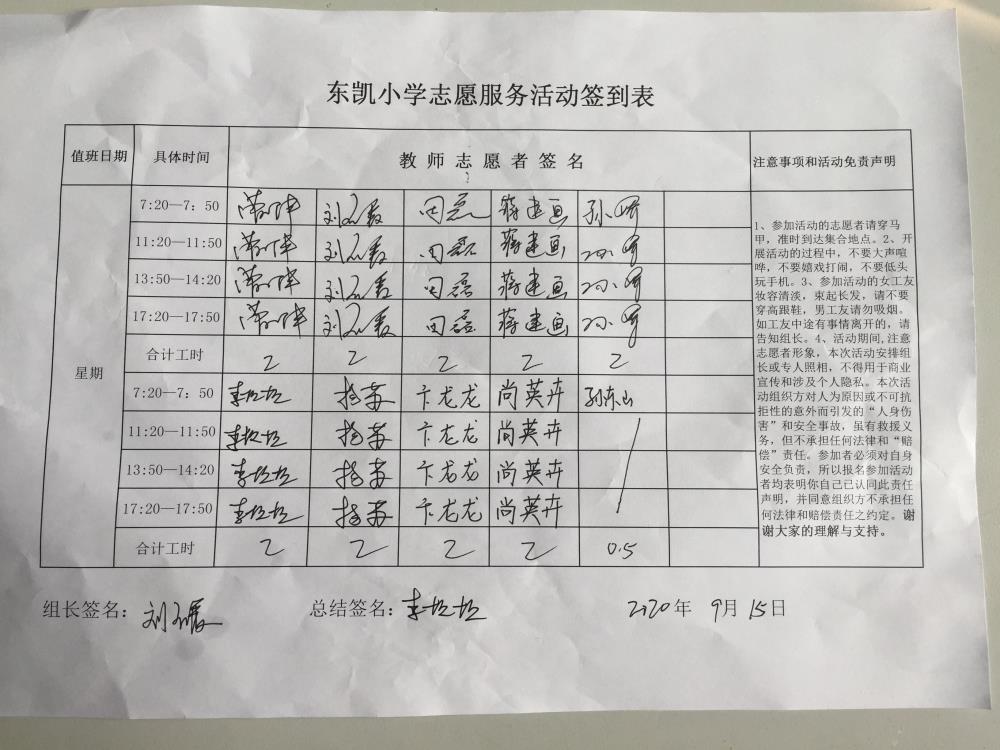 东凯小学志愿服务活动签到表
值班日期 具体时间 教 师 志 愿 者 签 名 注意事项和活动免责声明
星期
7:20—7：50 刘 周磊 蒋建画 孙
11:20—11:50 刘 周磊 蒋建画 孙
13:50—14:20 刘 周磊 蒋建画 孙
17:20—17:50 刘 周磊 蒋建画 孙
合计工时 2 2 2 2 2
7:20—7：50 李垃垃 杨苏 卞龙龙 尚英卉 孙东山
11:20—11:50 李垃垃 杨苏 卞龙龙 尚英卉
13:50—14:20 李垃垃 杨苏 卞龙龙 尚英卉
17:20—17:50 李垃垃 杨苏 卞龙龙 尚英卉
合计工时 2 2 2 2 0.5
1、参加活动的志愿者请穿马
甲，准时到达集合地点。2、开
展活动的过程中，不要大声喧
哗，不要嬉戏打闹，不要低头
玩手机。3、参加活动的女工友
妆容清淡，束起长发，请不要
穿高跟鞋，男工友请勿吸烟。
如工友中途有事情离开的，请
告知组长。4、活动期间,注意
志愿者形象，本次活动安排组
长或专人照相，不得用于商业
宣传和涉及个人隐私。本次活
动组织方对人为原因或不可抗
拒性的意外而引发的“人身伤
害”和安全事故，虽有救援义
务，但不承担任何法律和“赔
偿”责任。参加者必须对自身
安全负责，所以报名参加活动
者均表明你自己已认同此责任
声明，并同意组织方不承担任
何法律和赔偿责任之约定。谢
谢大家的理解与支持。
组长签名：刘 总结签名：李垃垃 2020年 9月 15日